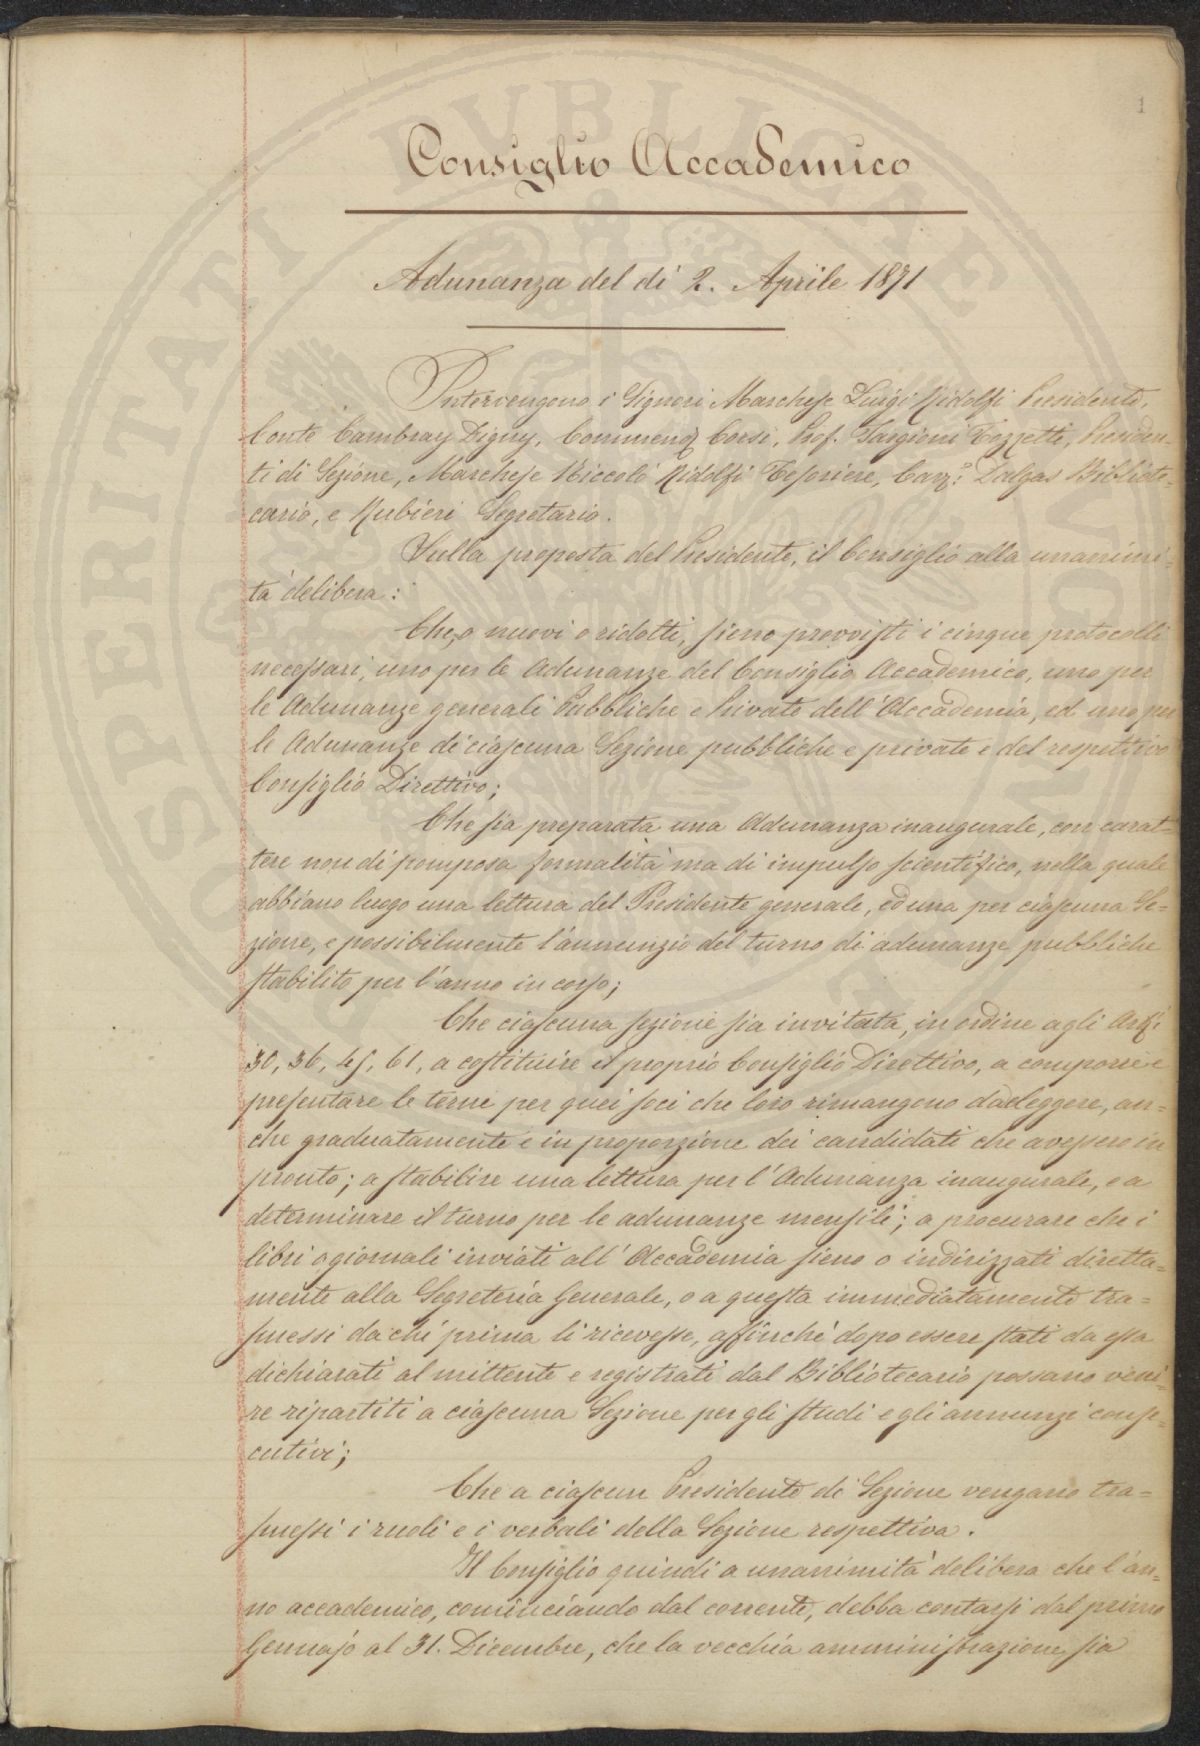 1
Consiglio Accademico
Adunanza del dì 2. Aprile 1871
Intervengono i Signori Marchese Luigi Ridolfi Presidente,
Conte Cambray Digny, Commend. Corsi, Prof. Targioni Tozzetti, Presiden-
ti di Sezione, Marchese Niccolò Ridolfi Tesoriere, Cav: Dalgas Bibliote-
cario, e Rubieri Segretario.
Sulla proposta del Presidente, il Consiglio alla unanimi-
tà delibera:
Che, o nuovi o ridotti, sieno provvisti i cinque protocolli
necessari, uno per le Adunanze del Consiglio Accademico, uno per
le Adunanze generali Pubbliche e Private dell'Accademia, ed uno per
le Adunanze di ciascuna Sezione pubbliche e private e del respettivo
Consiglio Direttivo;
Che sia preparata una Adunanza inaugurale, con carat-
tere non di pomposa formalità ma di impulso scientifico, nella quale
abbiano luogo una lettura del Presidente generale, ed una per ciascuna Se-
zione, e possibilmente l'annunzio del turno di adunanze pubbliche
stabilito per l'anno in corso;
Che ciascuna sezione sia invitata, in ordine agli Arti
30, 36, 45, 61, a costituire il proprio Consiglio Direttivo, a comporre e
presentare le terne per quei soci che loro rimangono da eleggere, an-
che graduatamente e in proporzione dei candidati che avessero in
pronto; a stabilire una lettura per l'Adunanza inaugurale, e a
determinare il turno per le adunanze mensili; a procurare che i
libri o giornali inviati all'Accademia sieno o indirizzati diretta-
mente alla Segreteria Generale, o a questa immediatamente tra-
smessi da chi prima li ricevesse, affinchè dopo essere stati da essa
dichiarati al mittente e registrati dal Bibliotecario possano veni-
re ripartiti a ciascuna Sezione per gli studi e gli annunzi conse-
cutivi;
Che a ciascun Presidente di Sezione vengano tra-
smessi i ruoli e i verbali della Sezione respettiva.
Il Consiglio quindi a unanimità delibera che l'an-
no accademico, cominciando dal corrente, debba contarsi dal primo
Gennajo al 31. Dicembre, che la vecchia amministrazione sia